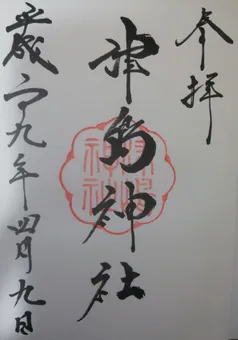 奉拝
津島神社
平成二九年四月九日